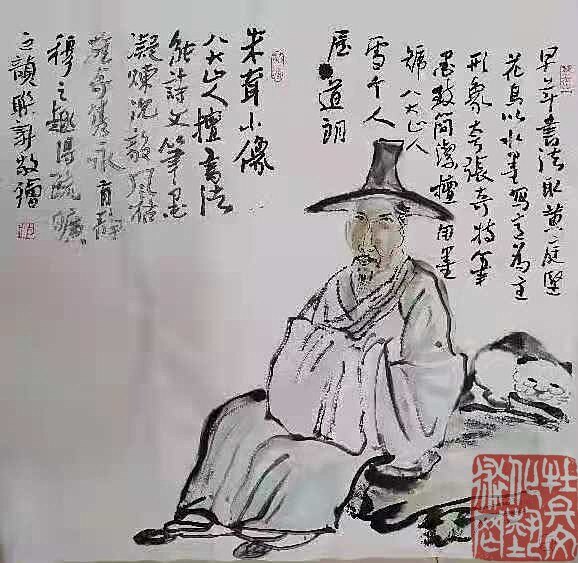 早年書法取黄庭堅
花鳥以水墨寫意為主
形象夸張奇特筆
墨簡潔擅用墨
號八大山人
雪个人
屋道朗
朱耷小像
八大山人擅書法
能詩文筆墨
凝煉沉毅風格
雄奇隽永有静
穆之趣得疏曠
之韻